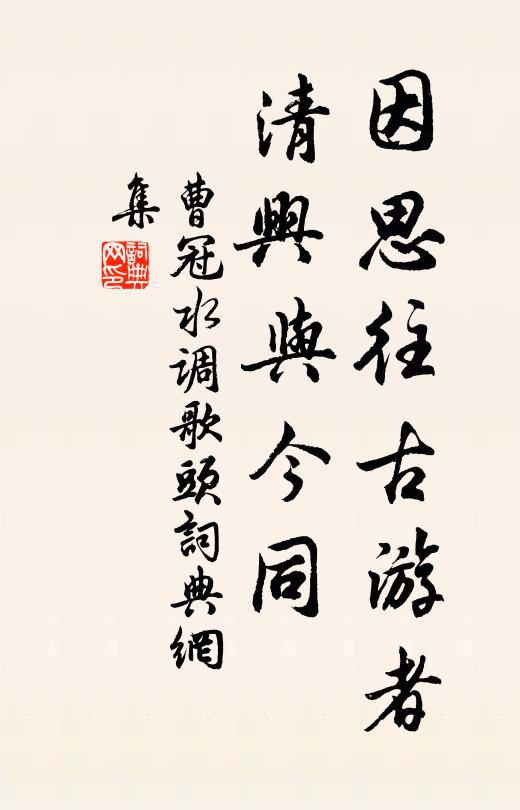 因思往古游者
清興與今同
曹冠水调歌頭詞典網
集
詞典
网印